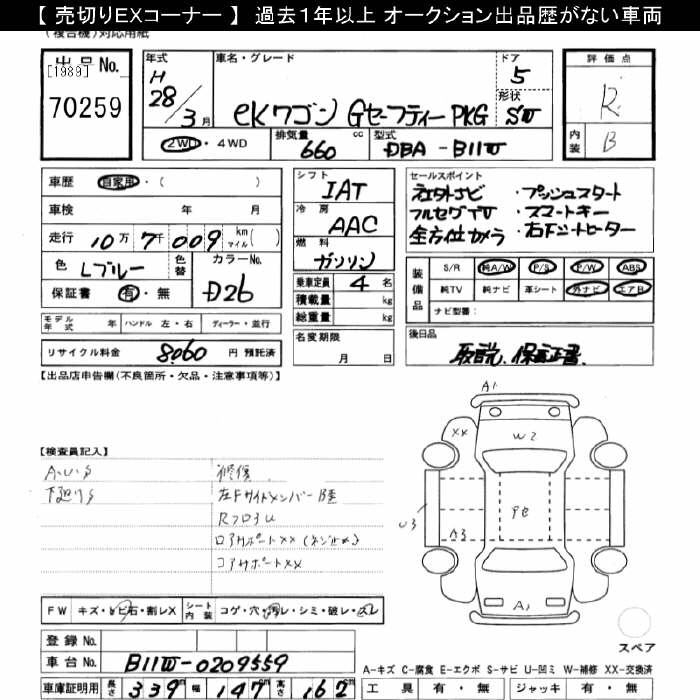 【 売切りEXコーナー 】 過去1年以上 オークション出品歴がない車両
(複合機)対応用紙
出品No.
[1989]
70259
年式
H
28/3月
車名・グレード
eKワゴン Gセーフティー PKG
ドア
5
形状
SW
評価点
R
内装
B
2WD・4WD
排気量 cc
660
型式
DBA - B11W
車歴 自家用・( )
車検 年 月
走行 10万7千009 km マイル( )
色 Lブルー
色替
カラーNo.
D26
保証書 有・無
シフト
IAT
冷房
AAC
燃料
ガソリン
乗車定員 4 名
積載量 kg
総重量 kg
セールスポイント
社外ナビ ・プッシュスタート
フルセグTV ・スマートキー
全方位カメラ ・右下シートヒーター
装備品
S/R 純A/W P/S P/W ABS
純TV 純ナビ 革シート 外ナビ エアB
ナビ型番:
モデル年式 年 ハンドル 左・右 ディーラー・並行
リサイクル料金 8,060 円 預託済
名変期限
月 日
後日品
取説、保証書
【出品店申告欄(不良箇所・欠品・注意事項等)】
【検査員記入】
A・U・S
下廻りS
修復
左Fサイドメンバー
RフロアU
ロアサポートXX
コアサポートXX
A1
XX
W2
U3
A3
A1
FW キズ・トビ石・割レX
シート内装 コゲ・穴・汚レ・シミ・破レ・スレ
登録No.
車台No. B11W-0209559
車庫証明用 長さ 339 cm 幅 147 cm 高さ 162
スペア
A-キズ C-腐食 E-エクボ S-サビ U-凹ミ W-補修 XX-交換済
工具 有・無 ジャッキ 有・無